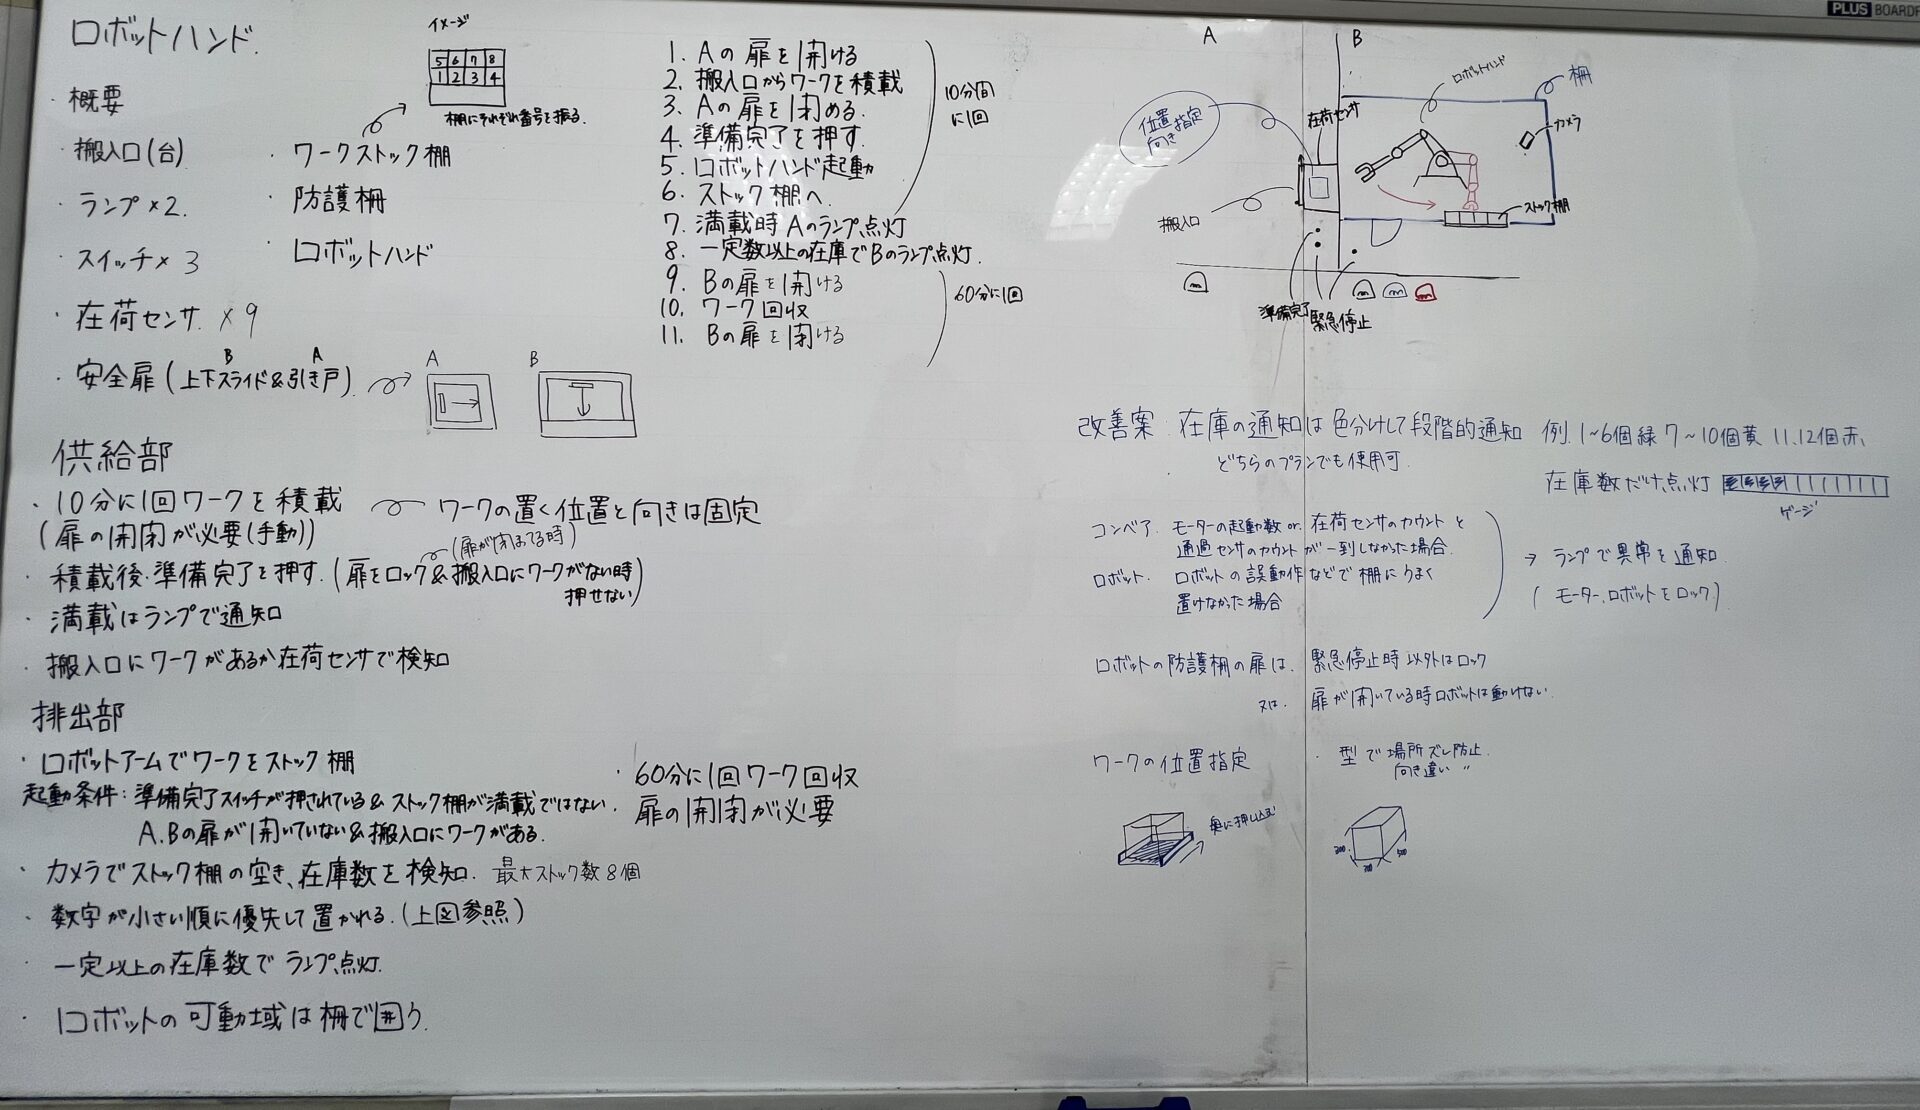 PLUS BOARD
ロボットハンド.
・概要
・搬入口(台)
・ランプ×2.
・スイッチ×3
・在荷センサ.×9
・安全扉(上下スライド&引き戸)
B
A
イメージ
5 6 7 8
1 2 3 4
棚にそれぞれ番号を振る.
・ワークストック棚
・防護柵
・ロボットハンド
A
B
1. Aの扉を開ける
2. 搬入口からワークを積載
3. Aの扉を閉める.
4. 準備完了を押す.
5. ロボットハンド起動
6. ストック棚へ.
7. 満載時Aのランプ点灯
8. 一定数以上の在庫でBのランプ点灯.
9. Bの扉を開ける
10. ワーク回収
11. Bの扉を閉ける
10分間
に1回
60分に1回
供給部
・10分に1回ワークを積載
(扉の開閉が必要(手動))
ワークの置く位置と向きは固定
(扉が閉まってる時)
・積載後、準備完了を押す.(扉をロック&搬入口にワークがない時
押せない)
・満載はランプで通知
・搬入口にワークがあるか在荷センサで検知
排出部
・ロボットアームでワークをストック棚
起動条件:準備完了スイッチが押されている&ストック棚が満載ではない.
A.Bの扉が開いていない&搬入口にワークがある.
・カメラでストック棚の空き、在庫数を検知. 最大ストック数8個
・数字が小さい順に優先して置かれる.(上図参照)
・一定以上の在庫数でランプ点灯.
・ロボットの可動域は柵で囲う.
・60分に1回ワーク回収
扉の開閉が必要
A
B
位置指定
向き
在荷センサ
ロボットハンド
柵
カメラ
搬入口
ストック棚
準備完了
緊急停止
改善案:在庫の通知は色分けして段階的通知 例.1~6個緑 7~10個黄 11.12個赤、
どちらのプランでも使用可.
在庫数だけ点灯
ゲージ
コンベア. モーターの起動数or.在荷センサのカウントと
通過センサのカウントが一致しなかった場合.
ロボット. ロボットの誤動作などで棚にうまく
置けなかった場合
→ ランプで異常を通知.
(モーター、ロボットをロック)
ロボットの防護柵の扉は、緊急停止時以外はロック
又は. 扉が開いている時ロボットは動けない.
ワークの位置指定
・型で場所ズレ防止.
向き違い 〃
奥に押し込む